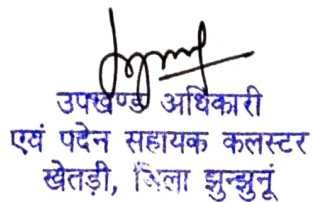 उपखण्ड अधिकारी
एवं पदेन सहायक कलस्टर
खेतड़ी, जिला झुन्झुनूं